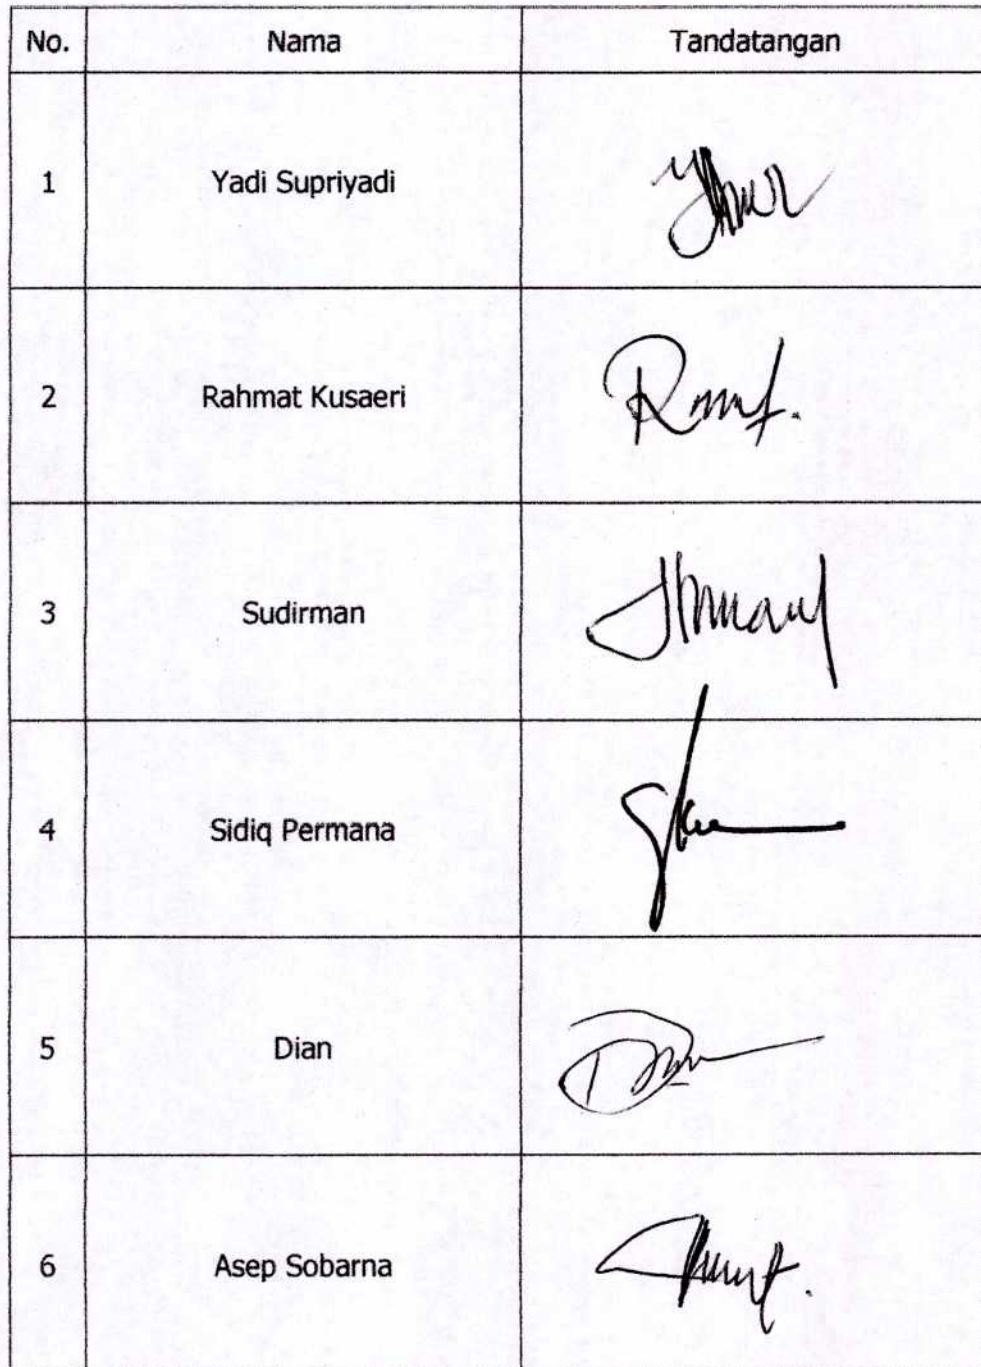 No. Nama Tandatangan
1 Yadi Supriyadi
2 Rahmat Kusaeri
3 Sudirman
4 Sidiq Permana
5 Dian
6 Asep Sobarna